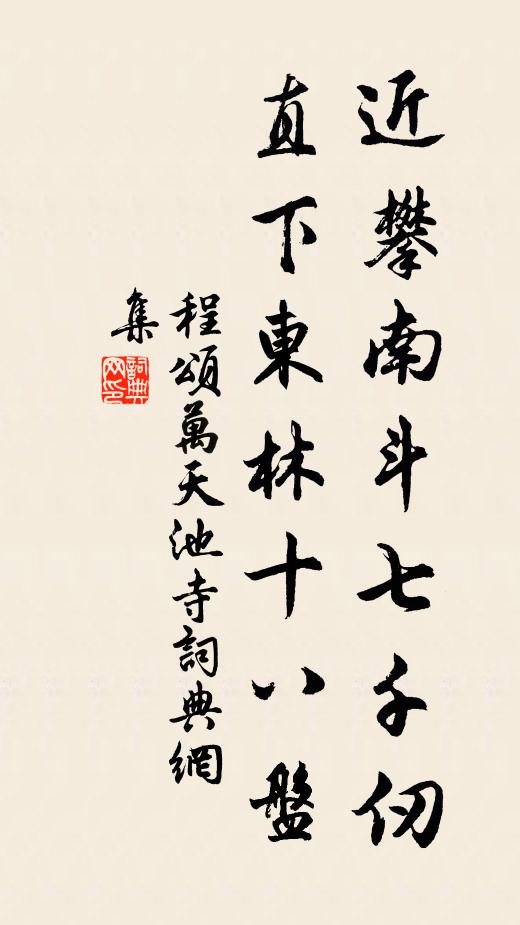 近攀南斗七千仞
直下東林十八盤
程頌萬天池寺詞典網
集
詞典網印